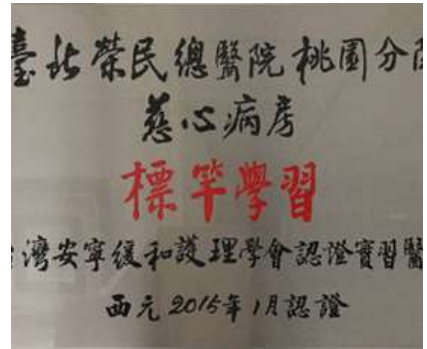 臺北榮民總醫院桃園分
慈心病房
標竿學習
灣安寧緩和護理學會認證實習醫
西元2015年1月認證